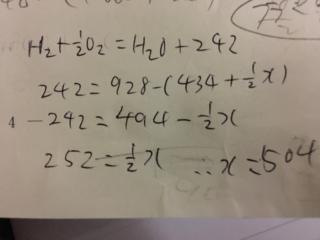 H₂+½O₂=H₂O+242
242=928-(434+½x)
4 -242=494-½x
252=½x ∴x=504